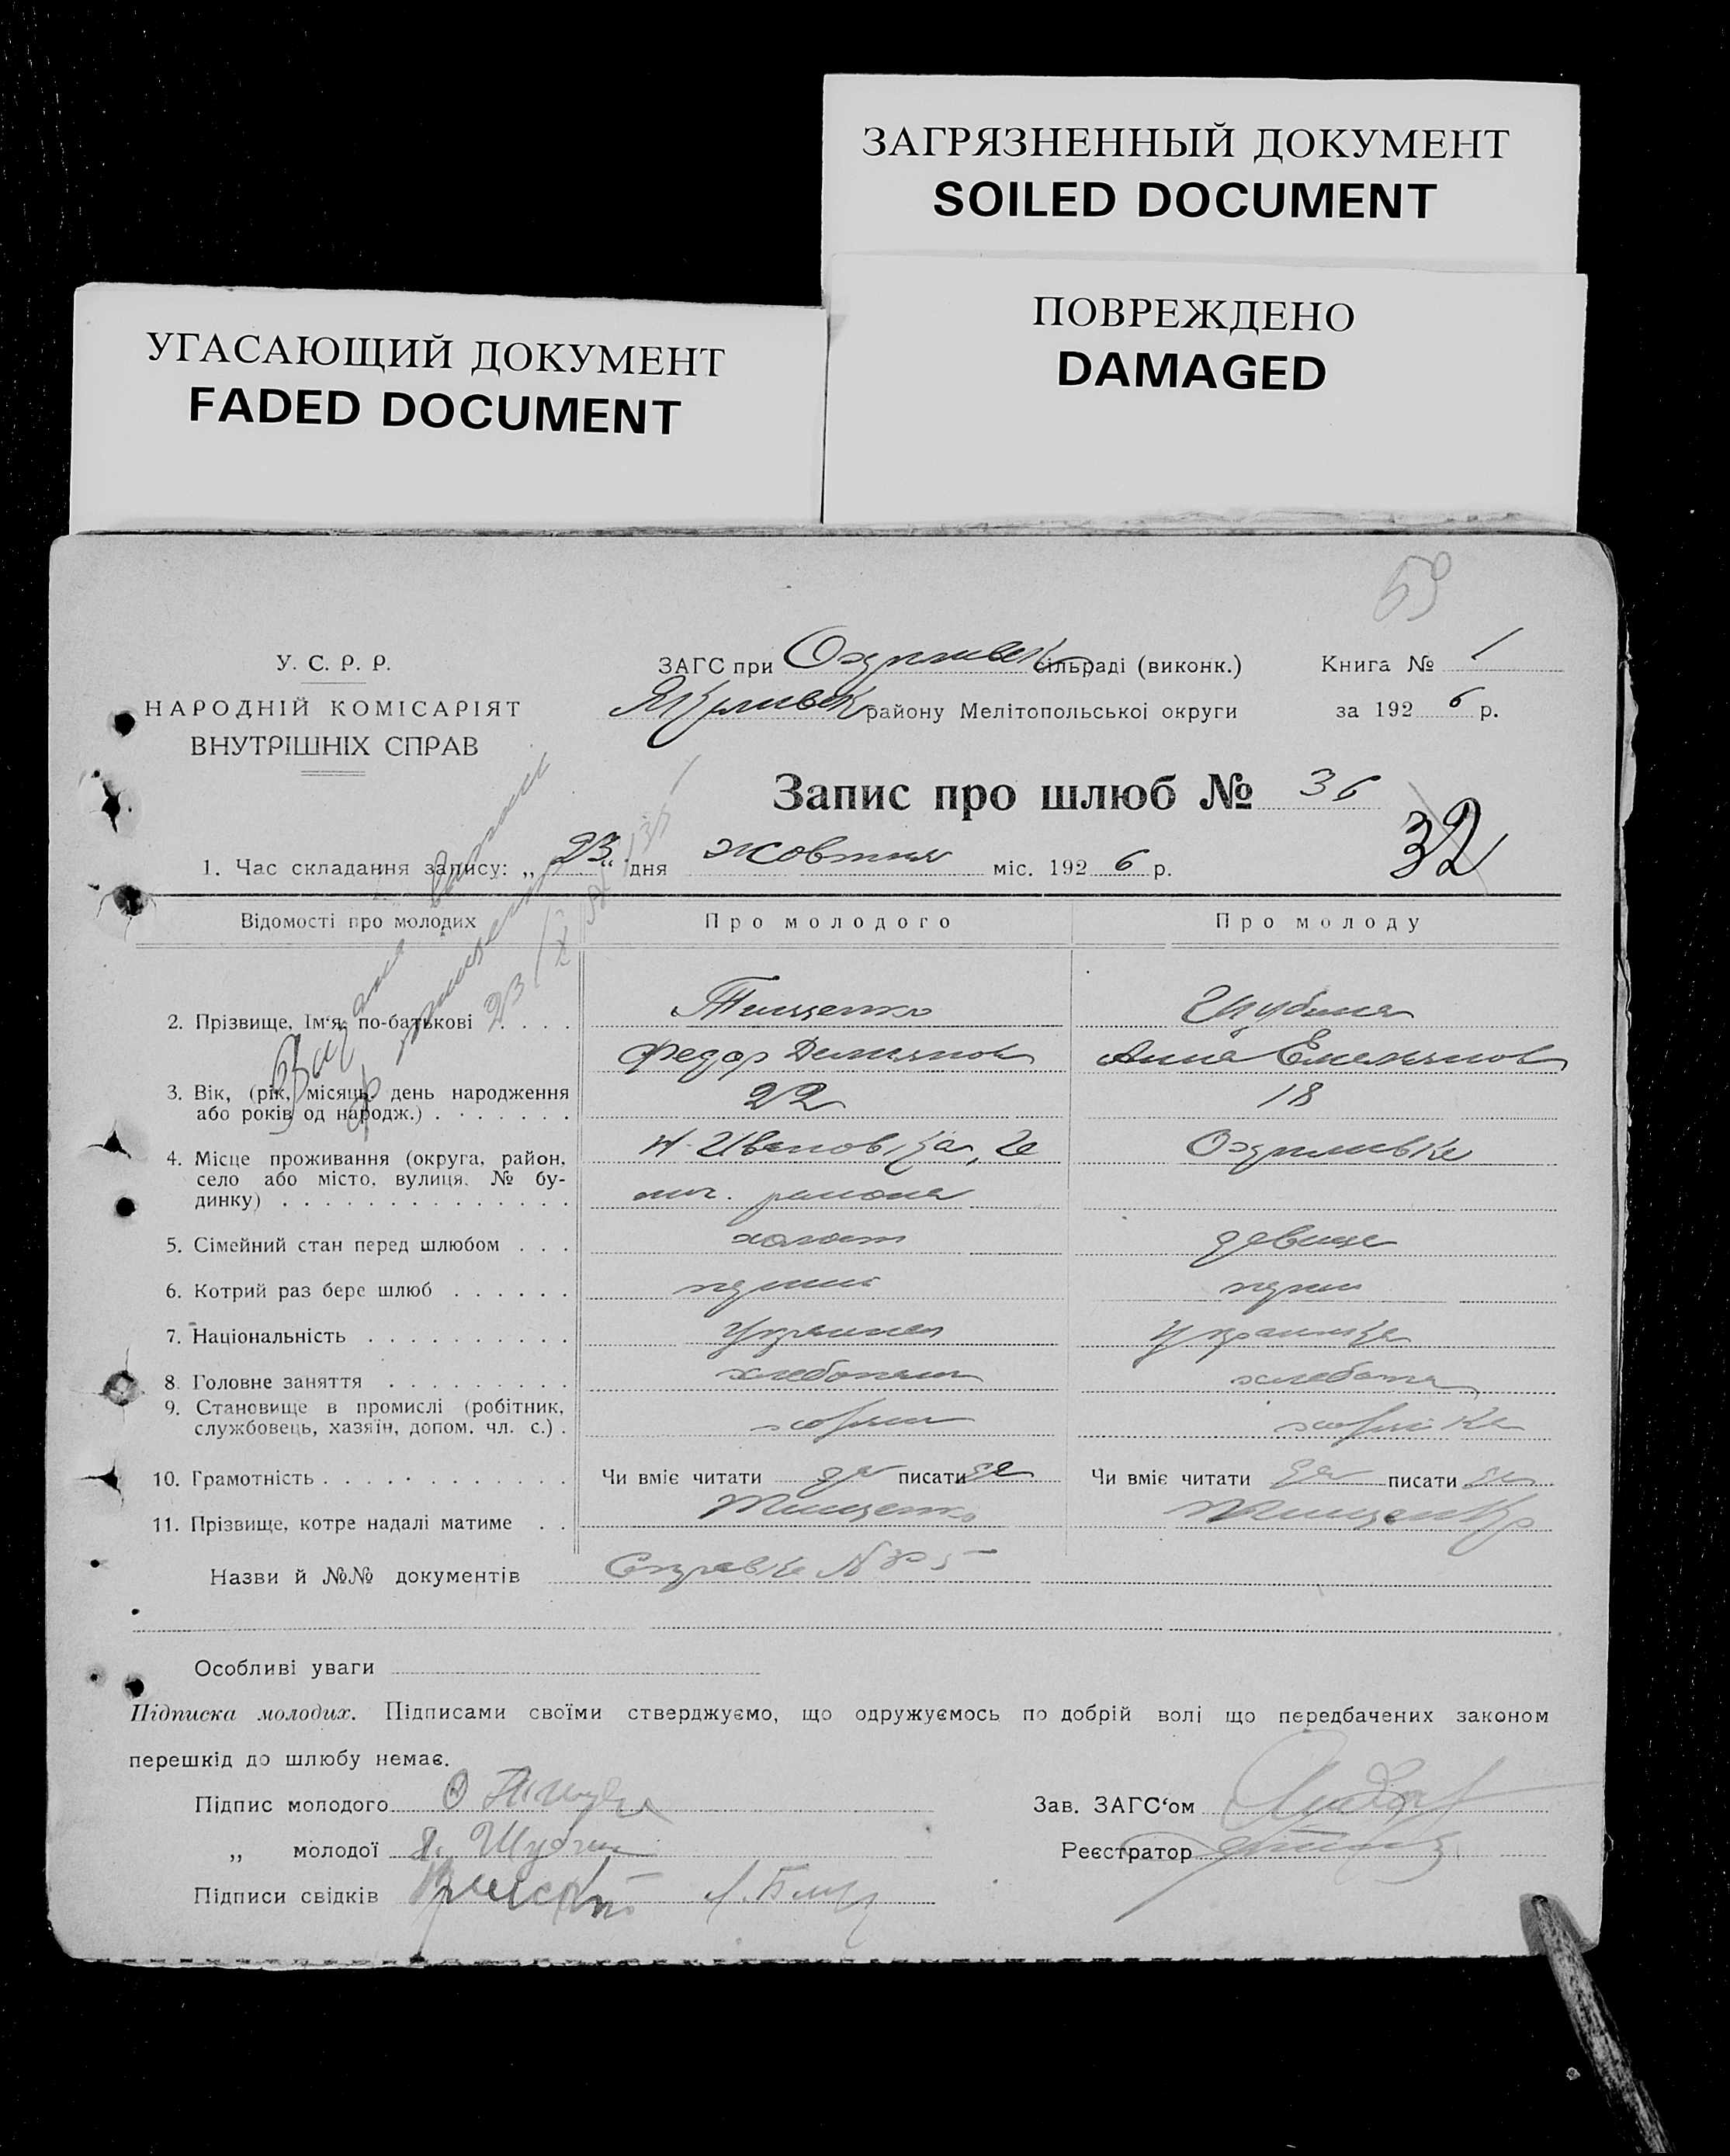 ЗАГРЯЗНЕННЫЙ ДОКУМЕНТ
SOILED DOCUMENT
ПОВРЕЖДЕНО
DAMAGED
УГАСАЮЩИЙ ДОКУМЕНТ
FADED DOCUMENT
59
У. С. Р. Р.
НАРОДНІЙ КОМІСАРІЯТ
ВНУТРІШНІХ СПРАВ
ЗАГС при Охримівск сільраді (виконк.)
Якимівск району Мелітопольської округи
Книга № 1
за 1926 р.
Запис про шлюб № 36
32
1. Час складання запису: „23“ дня жовтня міс. 1926 р.
Відомості про молодих Про молодого Про молоду
2. Прізвище, Ім‘я, по-батькові . . . . Тищенко Шубина
Федор Демьянов Анна Емельянов
3. Вік, (рік, місяць, день народження
або років од народж.) . . . . . . 22 18
4. Місце проживання (округа, район,
село або місто, вулиця, № бу-
динку) . . . . . . . . . . . . . .
Н-Ивановка, района Охримівка
5. Сімейний стан перед шлюбом . . . холост девица
6. Котрий раз бере шлюб . . . . . .
7. Національність . . . . . . . . . . Украинец Украинка
8. Головне заняття . . . . . . . . . хлебопаш хлебопа
9. Становище в промислі (робітник,
службовець, хазяїн, допом. чл. с.) .
10. Грамотність . . . . . . . . . . . . Чи вміє читати да писати да Чи вміє читати да писати да
11. Прізвище, котре надалі матиме . . Тищенко Тищенко
Назви й №№ документів Справка №
Особливі уваги
Підписка молодих. Підписами своїми стверджуємо, що одружуємось по добрій волі що передбачених законом
перешкід до шлюбу немає.
Підпис молодого
Зав. ЗАГС‘ом
„ молодої Шубина
Реєстратор
Підписи свідків